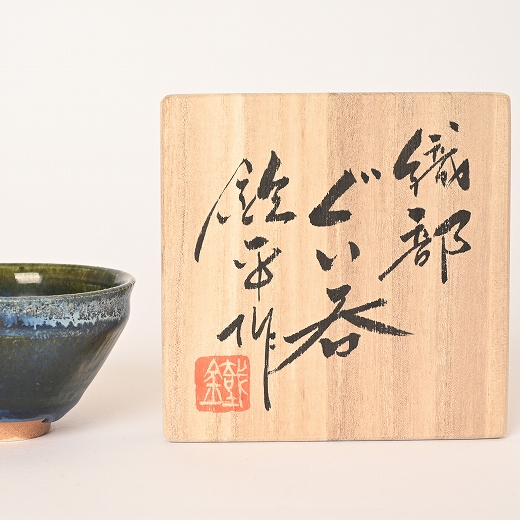 織部
ぐい呑
鉄平作
鐵